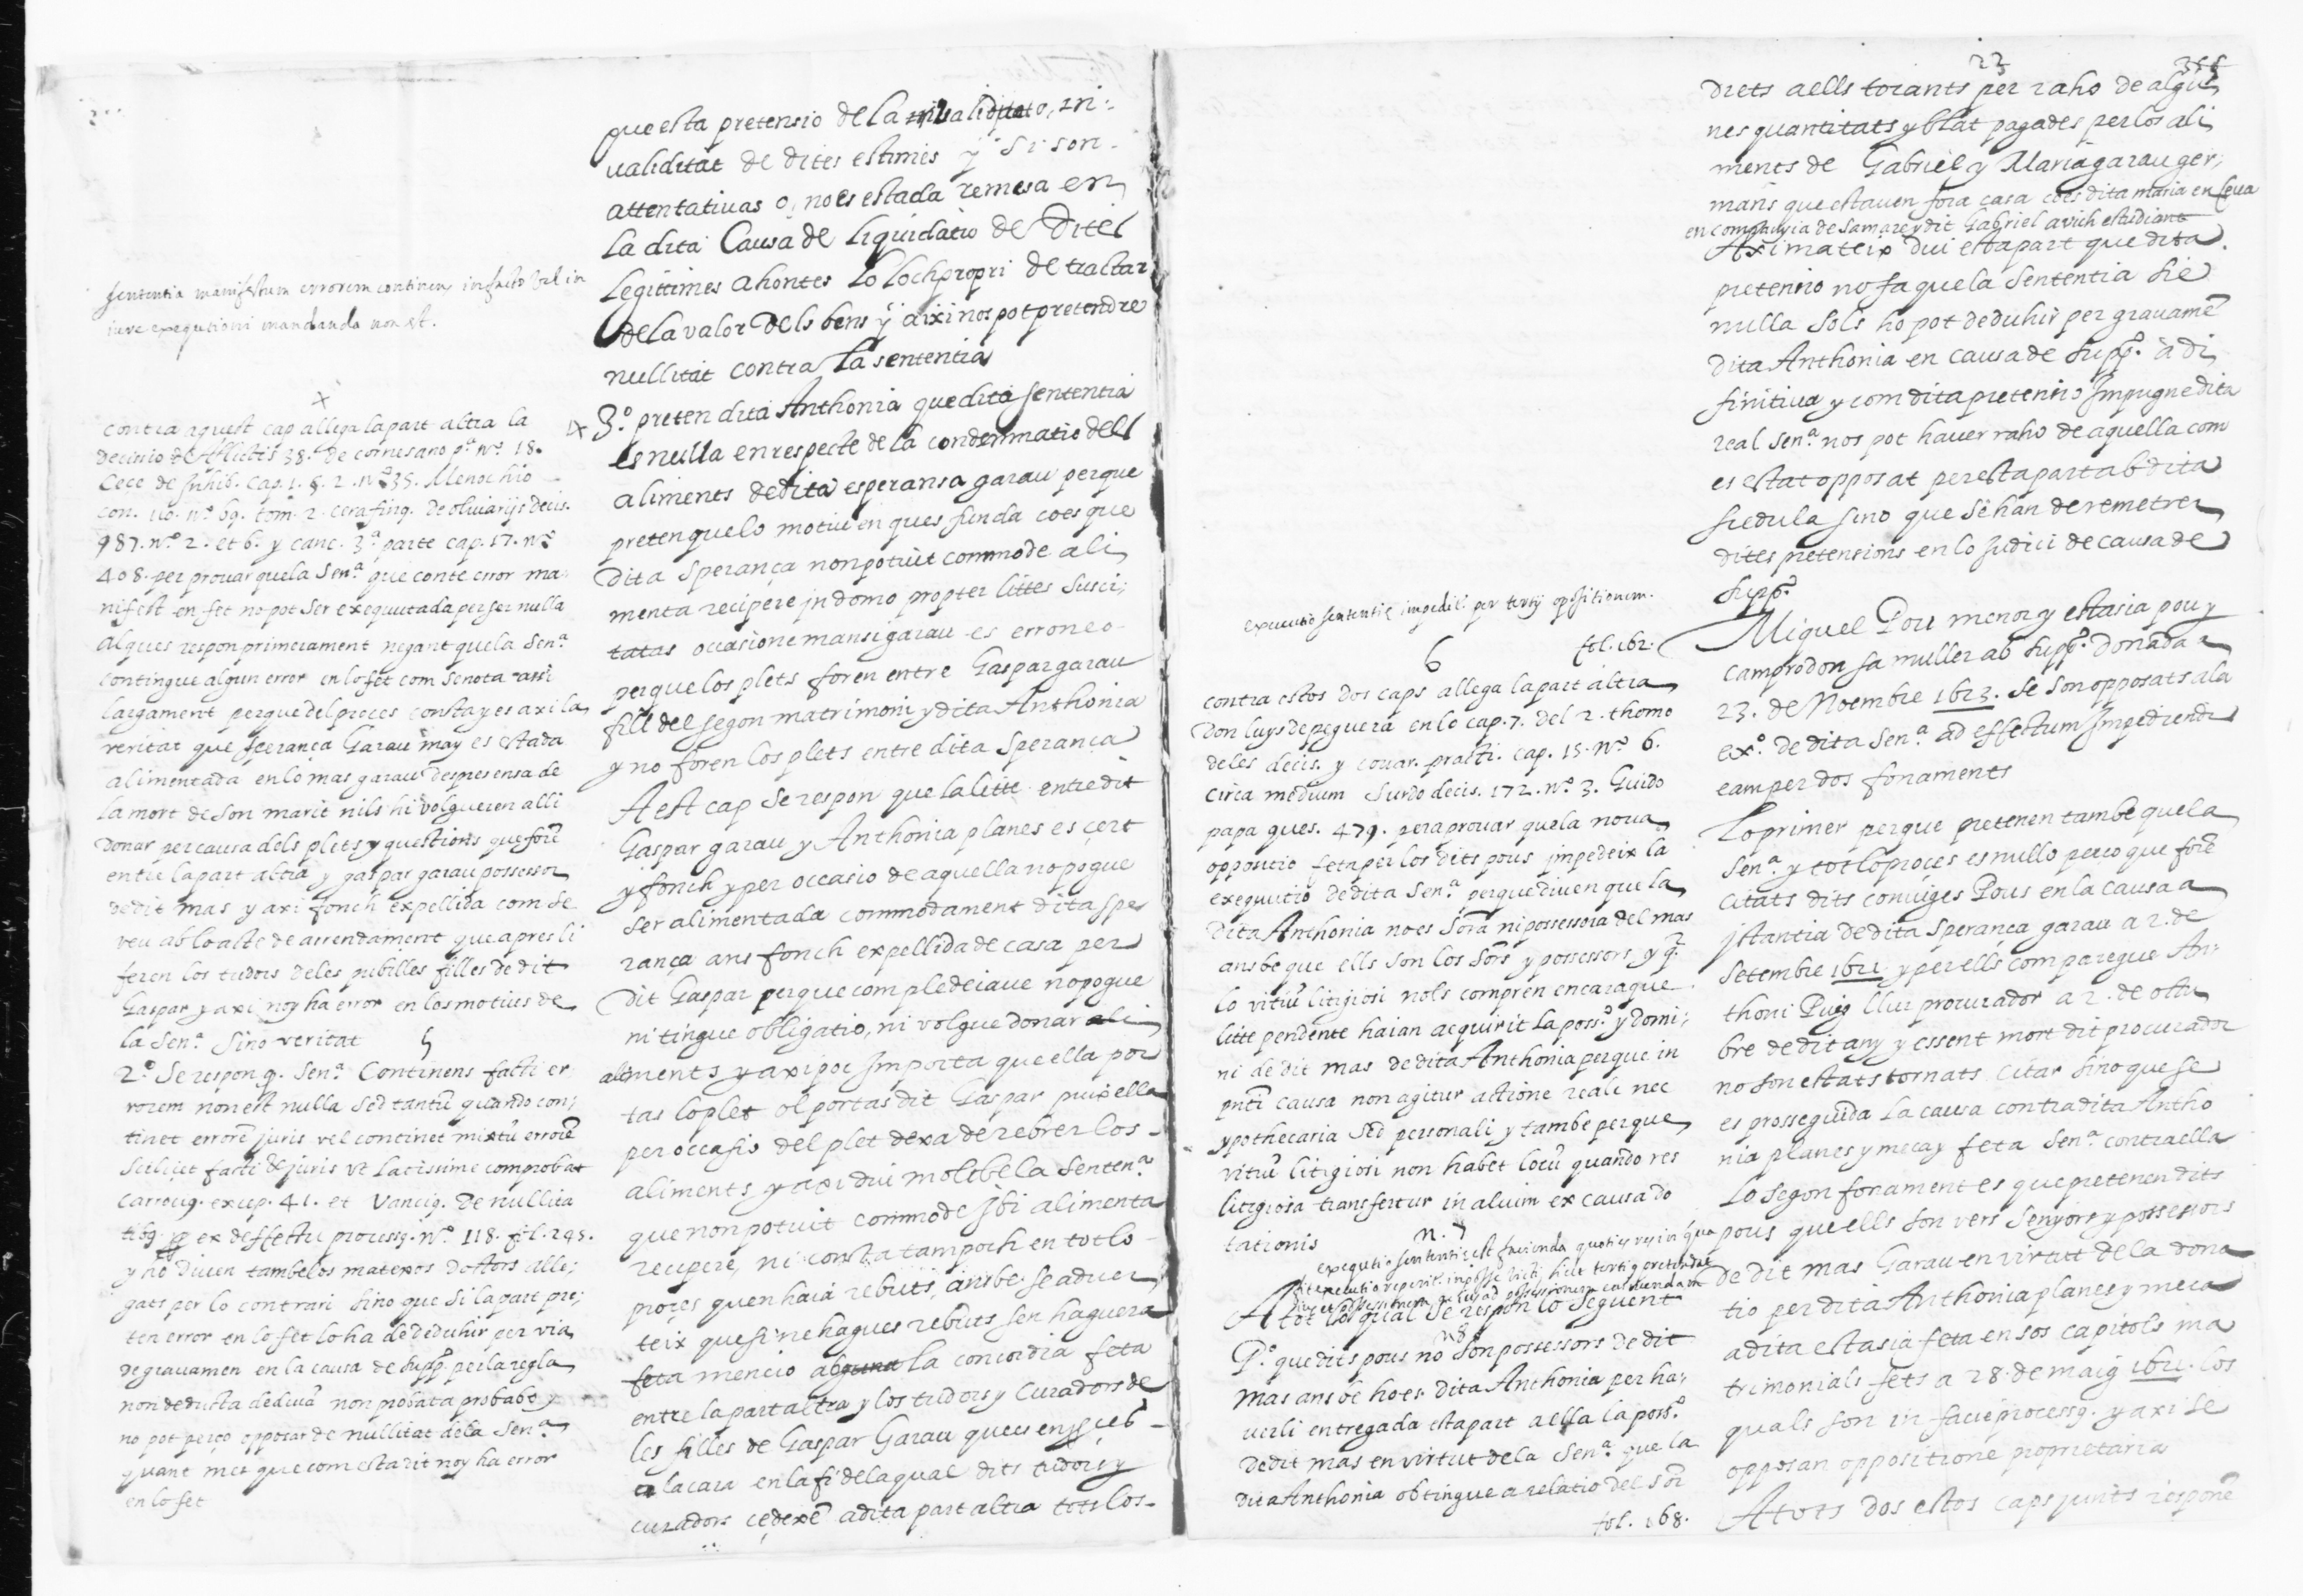 que esta pretensio de la
validitat de dites estimes y si son
attentativas o, no es estada remesa en
la dita Causa de liquidatio de dites
legitimes ahont es lo loch propri de tractar
de la valor dels bens y aixi nos pot pretendre
nullitat contra la sententia
3.º preten dita Anthonia que dita sententia
es nulla en respecte de la condemnatio dels
aliments de dita esperansa garau perque
preten que lo motiu en ques funda coes que
dita Sperança non potuit commode ali
menta recipere in domo propter littes susci,
tatas occasione mansi garau es erroneo
perque los plets foren entre Gaspar garau
fill del segon matrimoni y dita Anthonia
y no foren los plets entre dita Sperança
A est cap se respon que la litte entre dit
Gaspar garau y Anthonia planes es çert
y fonch y per occasio de aquella no pogue
ser alimentada commodament dita Spe
rança ans fonch expellida de casa per
dit Gaspar perque com pledeiave no pogue
ni tingue obligatio, ni volgue donar ali
aliments y axi poc importa que ella por
tas lo plet o l portas dit Gaspar puix ella
per occasio del plet dexa de rebrer los
aliments y axi diu molt be la senten.ª
que non potuit commode ibi alimenta
recipere, ni consta tampoch en tot lo
proçes quen haia rebuts, ans be se adver
teix que si ne hagues rebuts sen haguera
feta mencio ab la concordia feta
entre la part altra y los tudors y Curadors de
les filles de Gaspar Garau
a la cara en la fi de la qual dits tudors y
curadors cedexē a dita part altra tots los
sententia manifestum errorem continens in facto vel in
iure exequtioni mandanda non est.
x
contra aquest cap allega la part altra la
decisio de Afflictis 38. de cornesano p.ª n.º 18.
Cece de Inhib. cap. 1. §. 2. n.º 35. Menochio
con. 110. n.º 69. tom. 2. cerafinq. de oliuarijs decis.
987. n.º 2. et 6. y canc. 3.ª parte cap. 17. nº
408. per provar que la Sen.ª que conte error ma,
nifest en fet no pot ser exequutada per ser nulla
Al ques respon primerament negant que la Sen.ª
contingue algun error en lo fet com se nota assi
largament perque del proces consta y es axi la
veritat que sperança Garau may es estada
alimentada en lo mas garau despres ensa de
la mort de son marit nils hi volgueren alli
donar per causa dels plets y questions que forē
entre la part altra y gaspar garau possessor
de dit mas y axi fonch expellida com se
veu ab lo acte de arrendament que apres li
feren los tudors de les pubilles filles de dit
Gaspar y axi noy ha error en los motius de
la Sen.ª sino veritat
5
2.º Se respon q. Sen.ª Continens facti er
rorem non est nulla sed tantū quando con,
tinet errorē juris vel continet mixtū errorē
scilicet facti & juris vt latissime comprobat
Carroçiq. excep. 41. et Vancig. de nullita
tibq. ex deffectu processq. N.º 118. fol. 295.
y ho diuen tambe los matexos doctors alle,
gats per lo contrari sino que si la part pre,
ten error en lo fet lo ha de deduhir per via
de gravamen en la causa de supp.º per la regla
non deducta deducā non probata probabo y
no pot perço opposar de nullitat de la Sen.ª
y quant mes que com esta dit noy ha error
en lo fet
23
drets a ells tocants per raho de algu
nes quantitats y blat pagades per los ali
ments de Gabriel y Maria garau ger,
mans que estaven fora casa coes dita maria en Ceva
en companyia de sa mare y dit Gabriel a vich estudiant
Aximateix diu esta part que dita
pretensio no fa que la Sententia sie
nulla sols ho pot deduhir per gravamē
dita Anthonia en causa de supp.º a di
finitiva y com dita pretensio impugne dita
real Sen.ª nos pot haver raho de aquella com
es estat opposat per esta part ab dita
sçedula sino que se han de remetrer
dites pretensions en lo judici de causa de
supp.º
Miquel Pou menor y estasia pou y
camprodon sa muller ab supp.º donada a
23. de Noembre 1623. se son opposats a la
ex.º de dita Sen.ª ad effectum impediendi
eam per dos fonaments
Lo primer perque pretenen tambe que la
Sen.ª y tot lo proçes es nullo perço que forē
citats dits coniuges Pous en la causa a
istantia de dita Sperança garau a 2. de
Setembre 1621 y per ells comparegue An,
thoni Puig llur procurador a 2. de octu
bre de dit any y essent mort dit procurador
no son estats tornats citar sino que se
es prosseguida la causa contra dita Antho
nia planes y meca y feta Sen.ª contra ella
Lo segon fonament es que pretenen dits
pous que ells son vers Senyors y possessors
de dit mas Garau en virtut de la dona
tio per dita Anthonia planes y meca
a dita estasia feta en sos capitols ma
trimonials fets a 28. de maig 1621. los
quals son in facie processq. y axi se
opposan oppositione proprietaria
A tots dos estos caps junts responē
executio sententie impedit. per tertij oppositionem.
6
fol. 162.
contra estos dos caps allega la part altra
Don luys de peguera en lo cap. 7. del 2. thomo
de les decis. y covar. practi. cap. 15. n.º 6.
circa medium Surdo decis. 172. n.º 3. Guido
papa ques. 479. pera provar que la nova
oppositio feta per los dits pous impedeix la
exequutio de dita Sen.ª perque diuen que la
dita Anthonia no es Sōra ni possessora del mas
ans be que ells son los Sōrs y possessors y q.
lo vitiū litigiosi nols compren encara que
litte pendente haian acquirit la poss.º y domi,
ni de dit mas de dita Anthonia perque in
pnti causa non agitur actione reali nec
ypothecaria sed personali y tambe perque
vitiū litigiosi non habet locū quando res
litigiosa transfertur in alium ex causa do
tationis
n. 7
exequtio sententie est facienda quoties res in qua
A tot lo qual se respon lo seguent
n 8
P.º que dits pous no son possessors de dit
mas ans be ho es dita Anthonia per ha,
verli entregada esta part a ella la poss.º
de dit mas en virtut de la Sen.ª que la
dita Anthonia obtingue a relatio del Sōr
fol. 168.